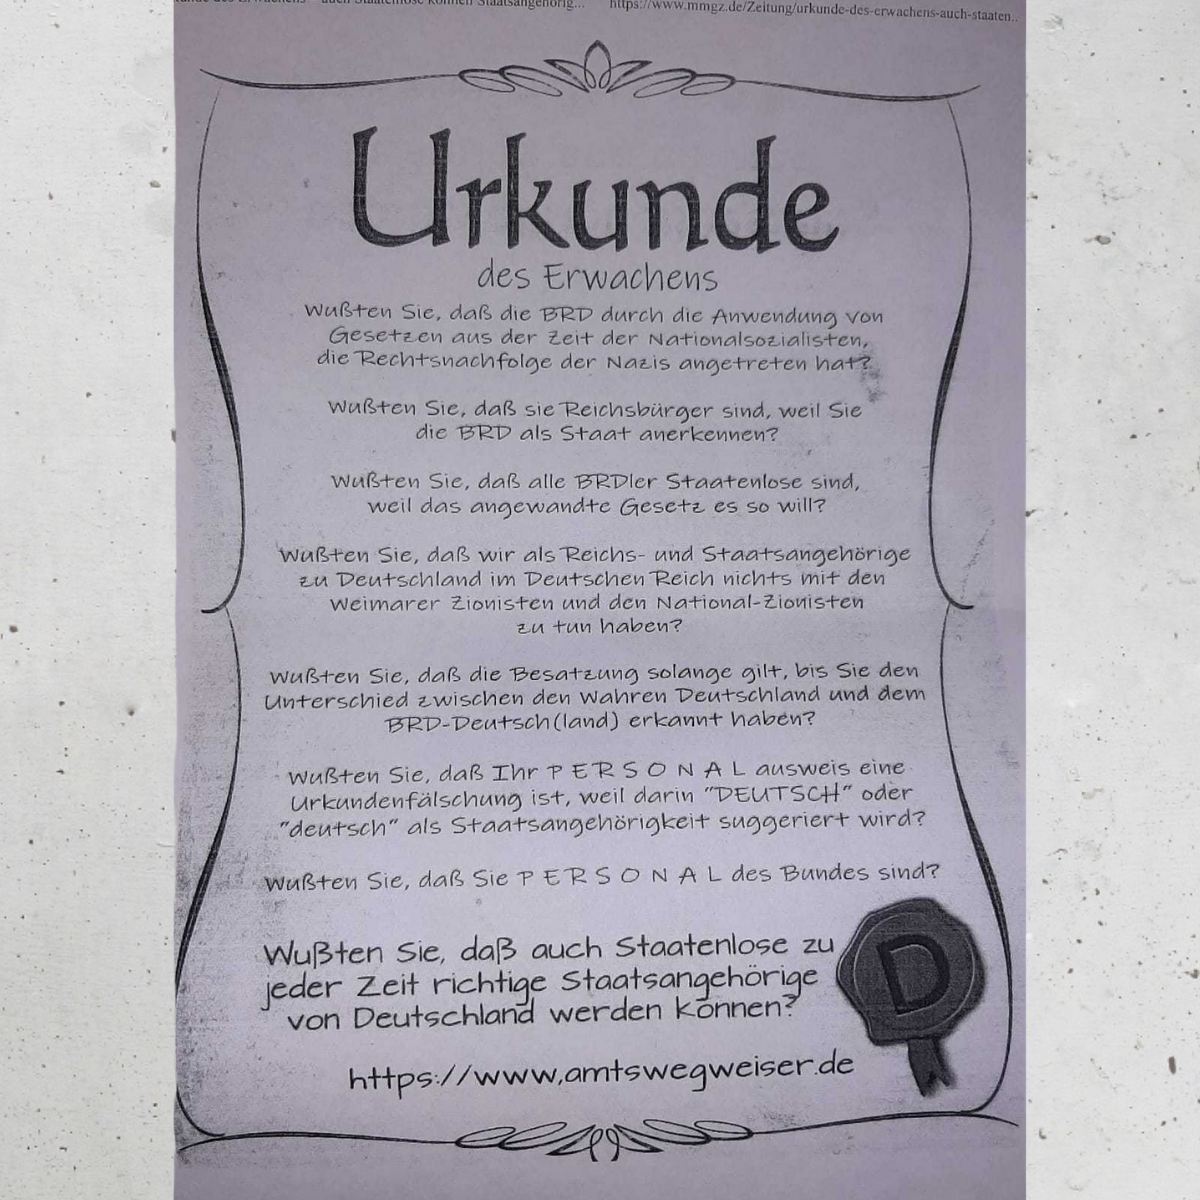 unde des Erwachens - auch Staatenlose können Staatsangehörig... https://www.mmgz.de/Zeitung/urkunde-des-erwachens-auch-staaten..
Urkunde
des Erwachens
Wußten Sie, daß die BRD durch die Anwendung von
Gesetzen aus der Zeit der Nationalsozialisten,
die Rechtsnachfolge der Nazis angetreten hat?
Wußten Sie, daß sie Reichsbürger sind, weil Sie
die BRD als Staat anerkennen?
Wußten Sie, daß alle BRDler Staatenlose sind,
weil das angewandte Gesetz es so will?
Wußten Sie, daß wir als Reichs- und Staatsangehörige
zu Deutschland im Deutschen Reich nichts mit den
Weimarer Zionisten und den National-Zionisten
zu tun haben?
Wußten Sie, daß die Besatzung solange gilt, bis Sie den
Unterschied zwischen den Wahren Deutschland und dem
BRD-Deutsch(land) erkannt haben?
Wußten Sie, daß Ihr P E R S O N A L ausweis eine
Urkundenfälschung ist, weil darin "DEUTSCH" oder
"deutsch" als Staatsangehörigkeit suggeriert wird?
Wußten Sie, daß Sie P E R S O N A L des Bundes sind?
Wußten Sie, daß auch Staatenlose zu
jeder Zeit richtige Staatsangehörige
von Deutschland werden können?
D
https://www.amtswegweiser.de